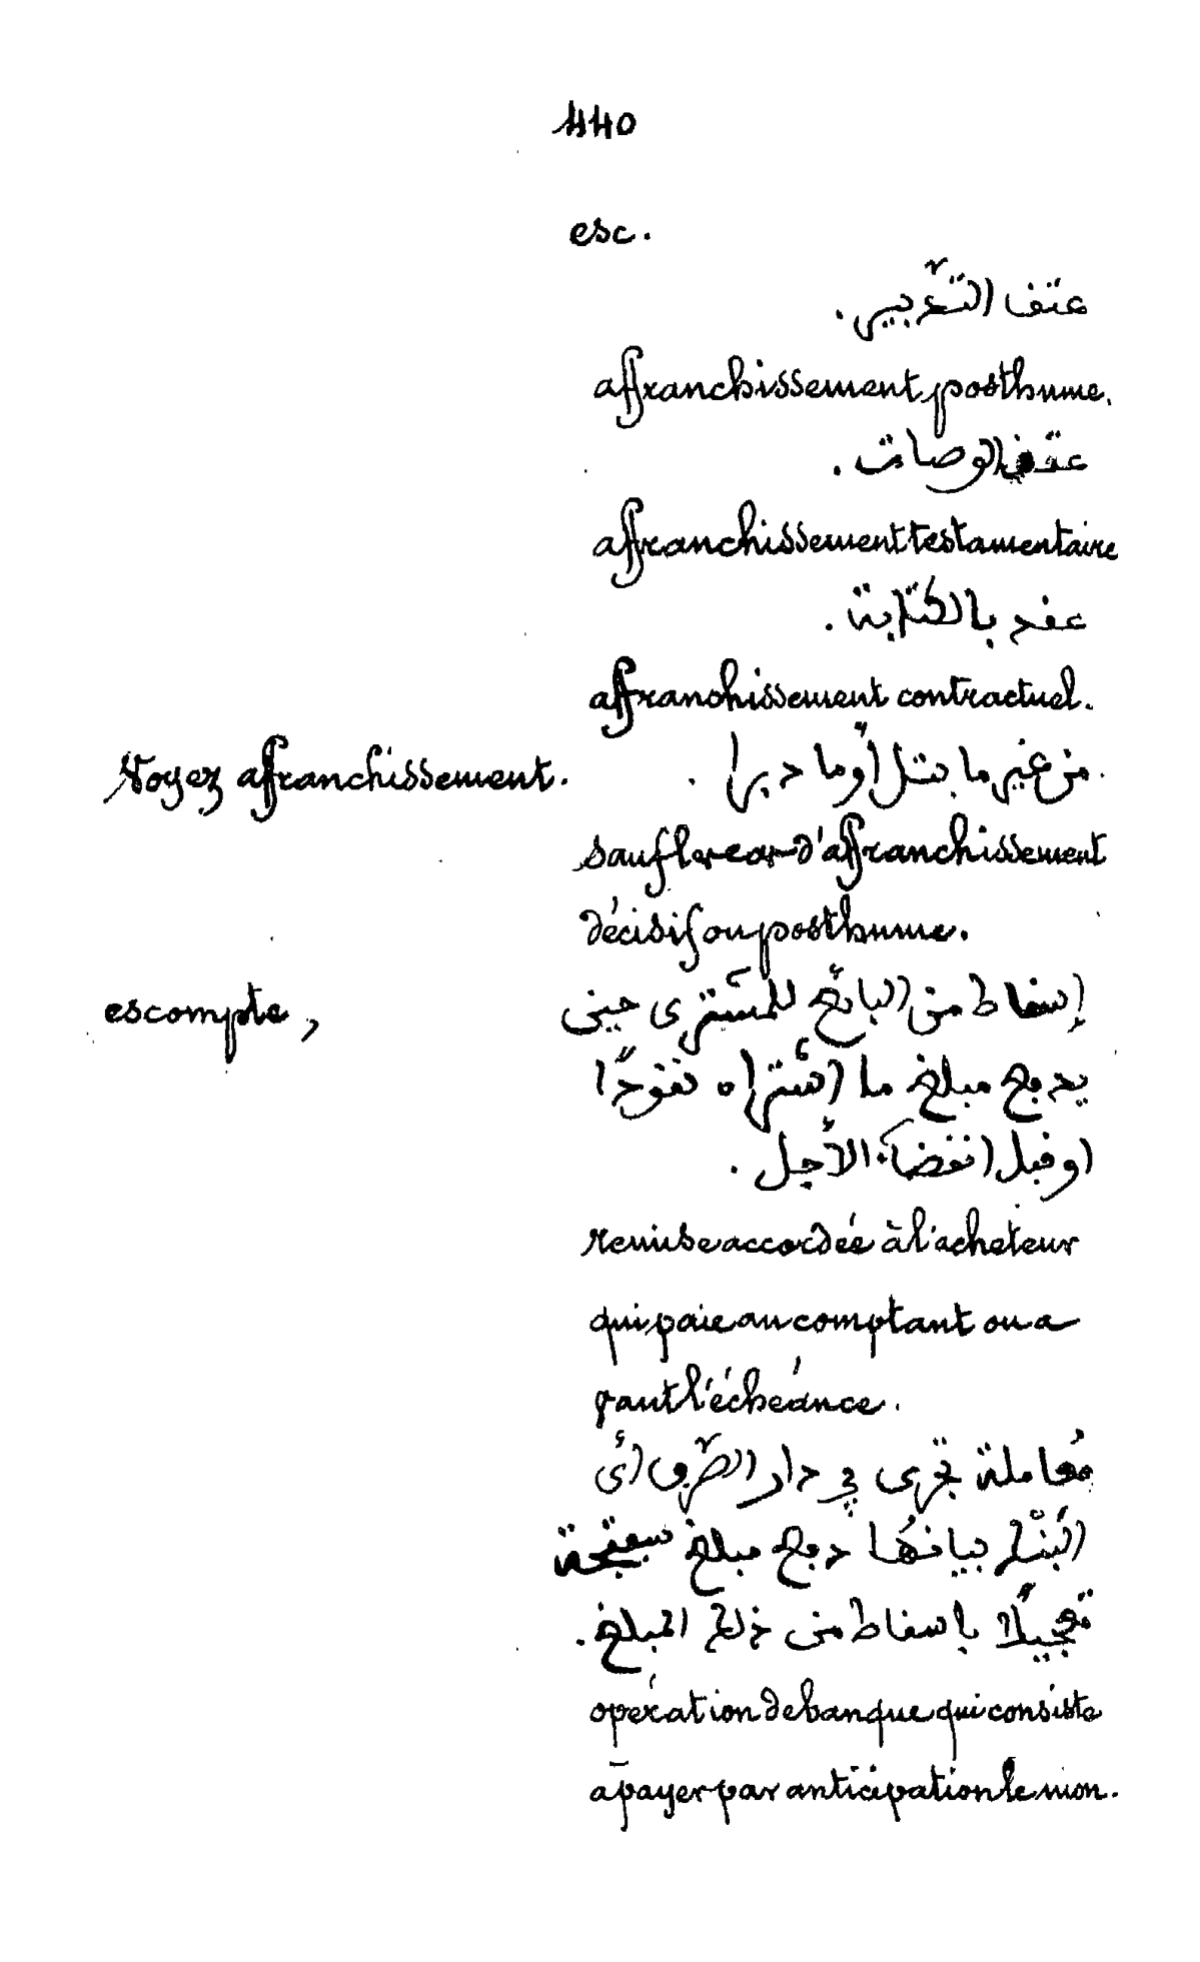 440
esc.
عتق التّدبير.
affranchissement posthume.
عتق الوصات.
affranchissement testamentaire
عقد بالكتابة.
affranchissement contractuel.
Voyez affranchissement.
من غير ما بتل أو ما دبرا.
sauf le cas d'affranchissement
décisif ou posthume.
escompte,
إسقاط من البائع للمشترى حين
يدفع مبلغ ما اشتراه نقودًا
او قبل انقضاء الأجل.
remise accordée à l'acheteur
qui paie au comptant ou a
vant l'échéance.
مُعاملة تجرى في دار الصّرف أي
البَنْك بيانهُا دفع مبلغ سفتجة
تعجيلًا باسقاط من ذلك المبلغ.
opération de banque qui consiste
à payer par anticipation le mon.